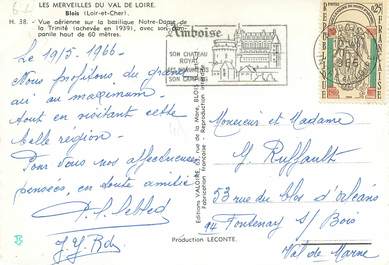 LES MERVEILLES DU VAL DE LOIRE.
Blois (Loir-et-Cher).
H. 38. - Vue aérienne sur la basilique Notre-Dame de
la Trinité (achevée en 1939), avec son campanile
haut de 60 mètres.
Amboise
SON CHATEAU
ROYAL
SES MONUMENTS
SON CAMPING
Le 19/5 1966 -
Nous profitons du grand
air au maximum
tout en visitant cette
belle région -
Pour Tous nos affectueuses
pensées, en toute amitié
Monsieur et Madame
G. Ruffault
53 rue du clos d'orléans
94 Fontenay s/ Bois
Val de Marne
Fabrication Française - Reproduction
Production LECONTE.